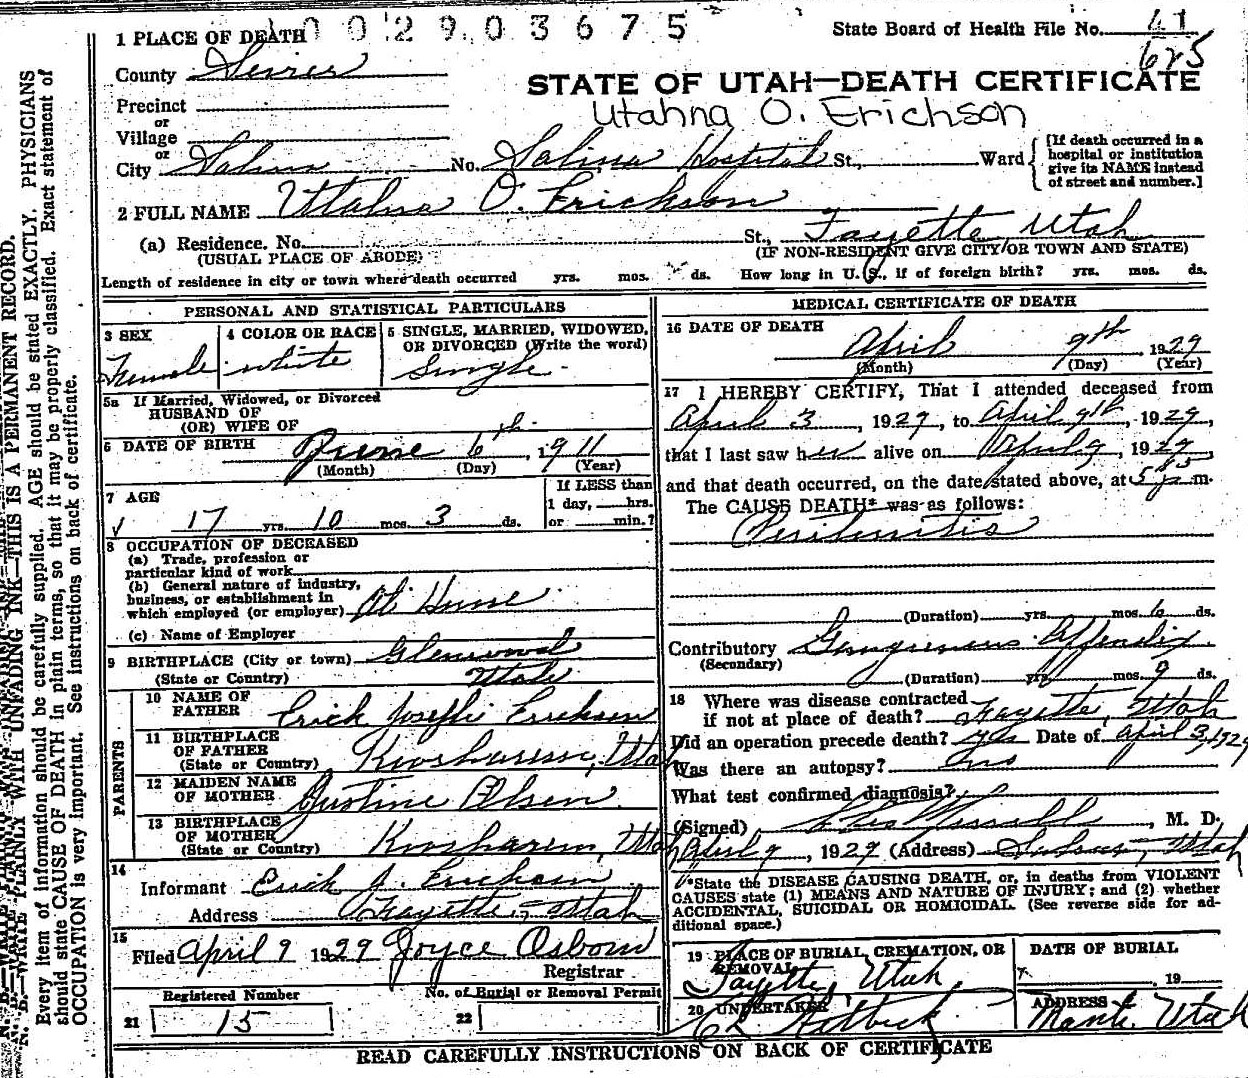 0 0 2 9 0 3 6 7 5
State Board of Health File No. 41
625
1 PLACE OF DEATH
County Sevier
STATE OF UTAH—DEATH CERTIFICATE
Utahna O. Erichson
Precinct
or
Village
or
City Salina No. Salina Hospital St., Ward
[If death occurred in a
hospital or institution
give its NAME instead
of street and number.]
2 FULL NAME Utahna O. Erickson
(a) Residence. No. St., Fayette Utah
(USUAL PLACE OF ABODE) (IF NON-RESIDENT GIVE CITY OR TOWN AND STATE)
Length of residence in city or town where death occurred yrs. mos. ds. How long in U. S., if of foreign birth? yrs. mos. ds.
PERSONAL AND STATISTICAL PARTICULARS
3 SEX
Female
4 COLOR OR RACE
white
5 SINGLE, MARRIED, WIDOWED,
OR DIVORCED (Write the word)
Single
5a If Married, Widowed, or Divorced
HUSBAND OF
(OR) WIFE OF
6 DATE OF BIRTH June 6th, 1911
(Month) (Day) (Year)
7 AGE
17 yrs. 10 mos. 3 ds.
If LESS than
1 day, hrs.
or min.?
8 OCCUPATION OF DECEASED
(a) Trade, profession or
particular kind of work
(b) General nature of industry,
business, or establishment in
which employed (or employer) At Home
(c) Name of Employer
9 BIRTHPLACE (City or town) Glenwood
(State or Country) Utah
PARENTS
10 NAME OF
FATHER Erick Joseph Erickson
11 BIRTHPLACE
OF FATHER
(State or Country) Koosharem, Utah
12 MAIDEN NAME
OF MOTHER Justine Olsen
13 BIRTHPLACE
OF MOTHER
(State or Country) Koosharem, Utah
14
Informant Erick J. Erickson
Address Fayette, Utah
15
Filed April 9 1929 Joyce Osborn
Registrar
Registered Number
21 15
No. of Burial or Removal Permit
22
MEDICAL CERTIFICATE OF DEATH
16 DATE OF DEATH
April 9th, 1929
(Month) (Day) (Year)
17 I HEREBY CERTIFY, That I attended deceased from
April 3, 1929, to April 9th, 1929,
that I last saw her alive on April 9, 1929,
and that death occurred, on the date stated above, at m.
The CAUSE DEATH* was as follows:
Peritonitis
(Duration) yrs. mos. 6 ds.
Contributory Gangrenous Appendix
(Secondary)
(Duration) yrs. mos. 9 ds.
18 Where was disease contracted
if not at place of death? Fayette, Utah
Did an operation precede death? yes Date of April 3, 1929
Was there an autopsy? no
What test confirmed diagnosis?
(Signed) , M. D.
April 9, 1929 (Address) Salina, Utah
*State the DISEASE CAUSING DEATH, or, in deaths from VIOLENT
CAUSES state (1) MEANS AND NATURE OF INJURY; and (2) whether
ACCIDENTAL, SUICIDAL OR HOMICIDAL. (See reverse side for ad-
ditional space.)
19 PLACE OF BURIAL, CREMATION, OR
REMOVAL
Fayette, Utah
DATE OF BURIAL
19
20 UNDERTAKER
ADDRESS
Manti, Utah
READ CAREFULLY INSTRUCTIONS ON BACK OF CERTIFICATE
N. B.—WRITE PLAINLY WITH UNFADING INK—THIS IS A PERMANENT RECORD.
Every item of information should be carefully supplied. AGE should be stated EXACTLY. PHYSICIANS
should state CAUSE OF DEATH in plain terms, so that it may be properly classified. Exact statement of
OCCUPATION is very important. See instructions on back of certificate.